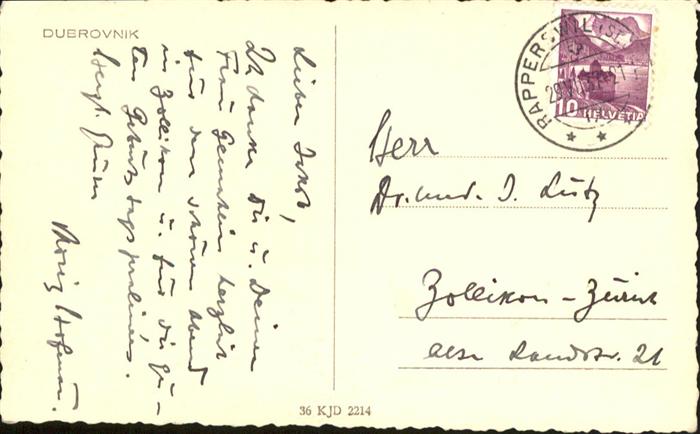 DUBROVNIK
Lieber Jakob,
Ich danke Dir u. Deiner
Frau Gemahlin herzlich
für den schönen Abend
in Zollikon u. für die gu-
ten Geburtstagspralinés.
Herzl. Grüsse
Moriz
RAPPERSWIL (ST.
10 HELVETIA
Herr
Dr. med. J. Lutz
Zollikon - Zürich
alte Landstr. 21
36 KJD 2214